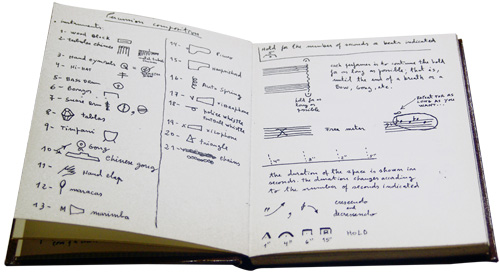 Percussion composition
. instruments.
1 - Wood Block
2 - tubular chimes
3 - Hand cymbals
4 - Hi-hat
5 - Bass Drum
6 - Bongos
7 - Snare Drum
8 - tablas
9 - Timpani
10 - Gong
Chinese gong
11 - Hand clap
12 - maracas
13 - M marimba
14 - Piano
15 - harpsichord
16 - Auto Spring
17 - V vibraphone
18 - or police whistle
19 - X xilophone
20 - triangle
21 - chains
Hold for the number of sounds or beats indicated
each performer is to continue the hold
for as long as possible, that is,
until the end of a breath or a
bow, gong, etc.
hold for
as long as
possible
repeat for as
long as you
want...
Free meter
4" 2" 4"
The duration of the space is shown in
seconds. The durations changes according
to the number of seconds indicated
crescendo
and
decrescendo
1" 4" 6" 15" HOLD